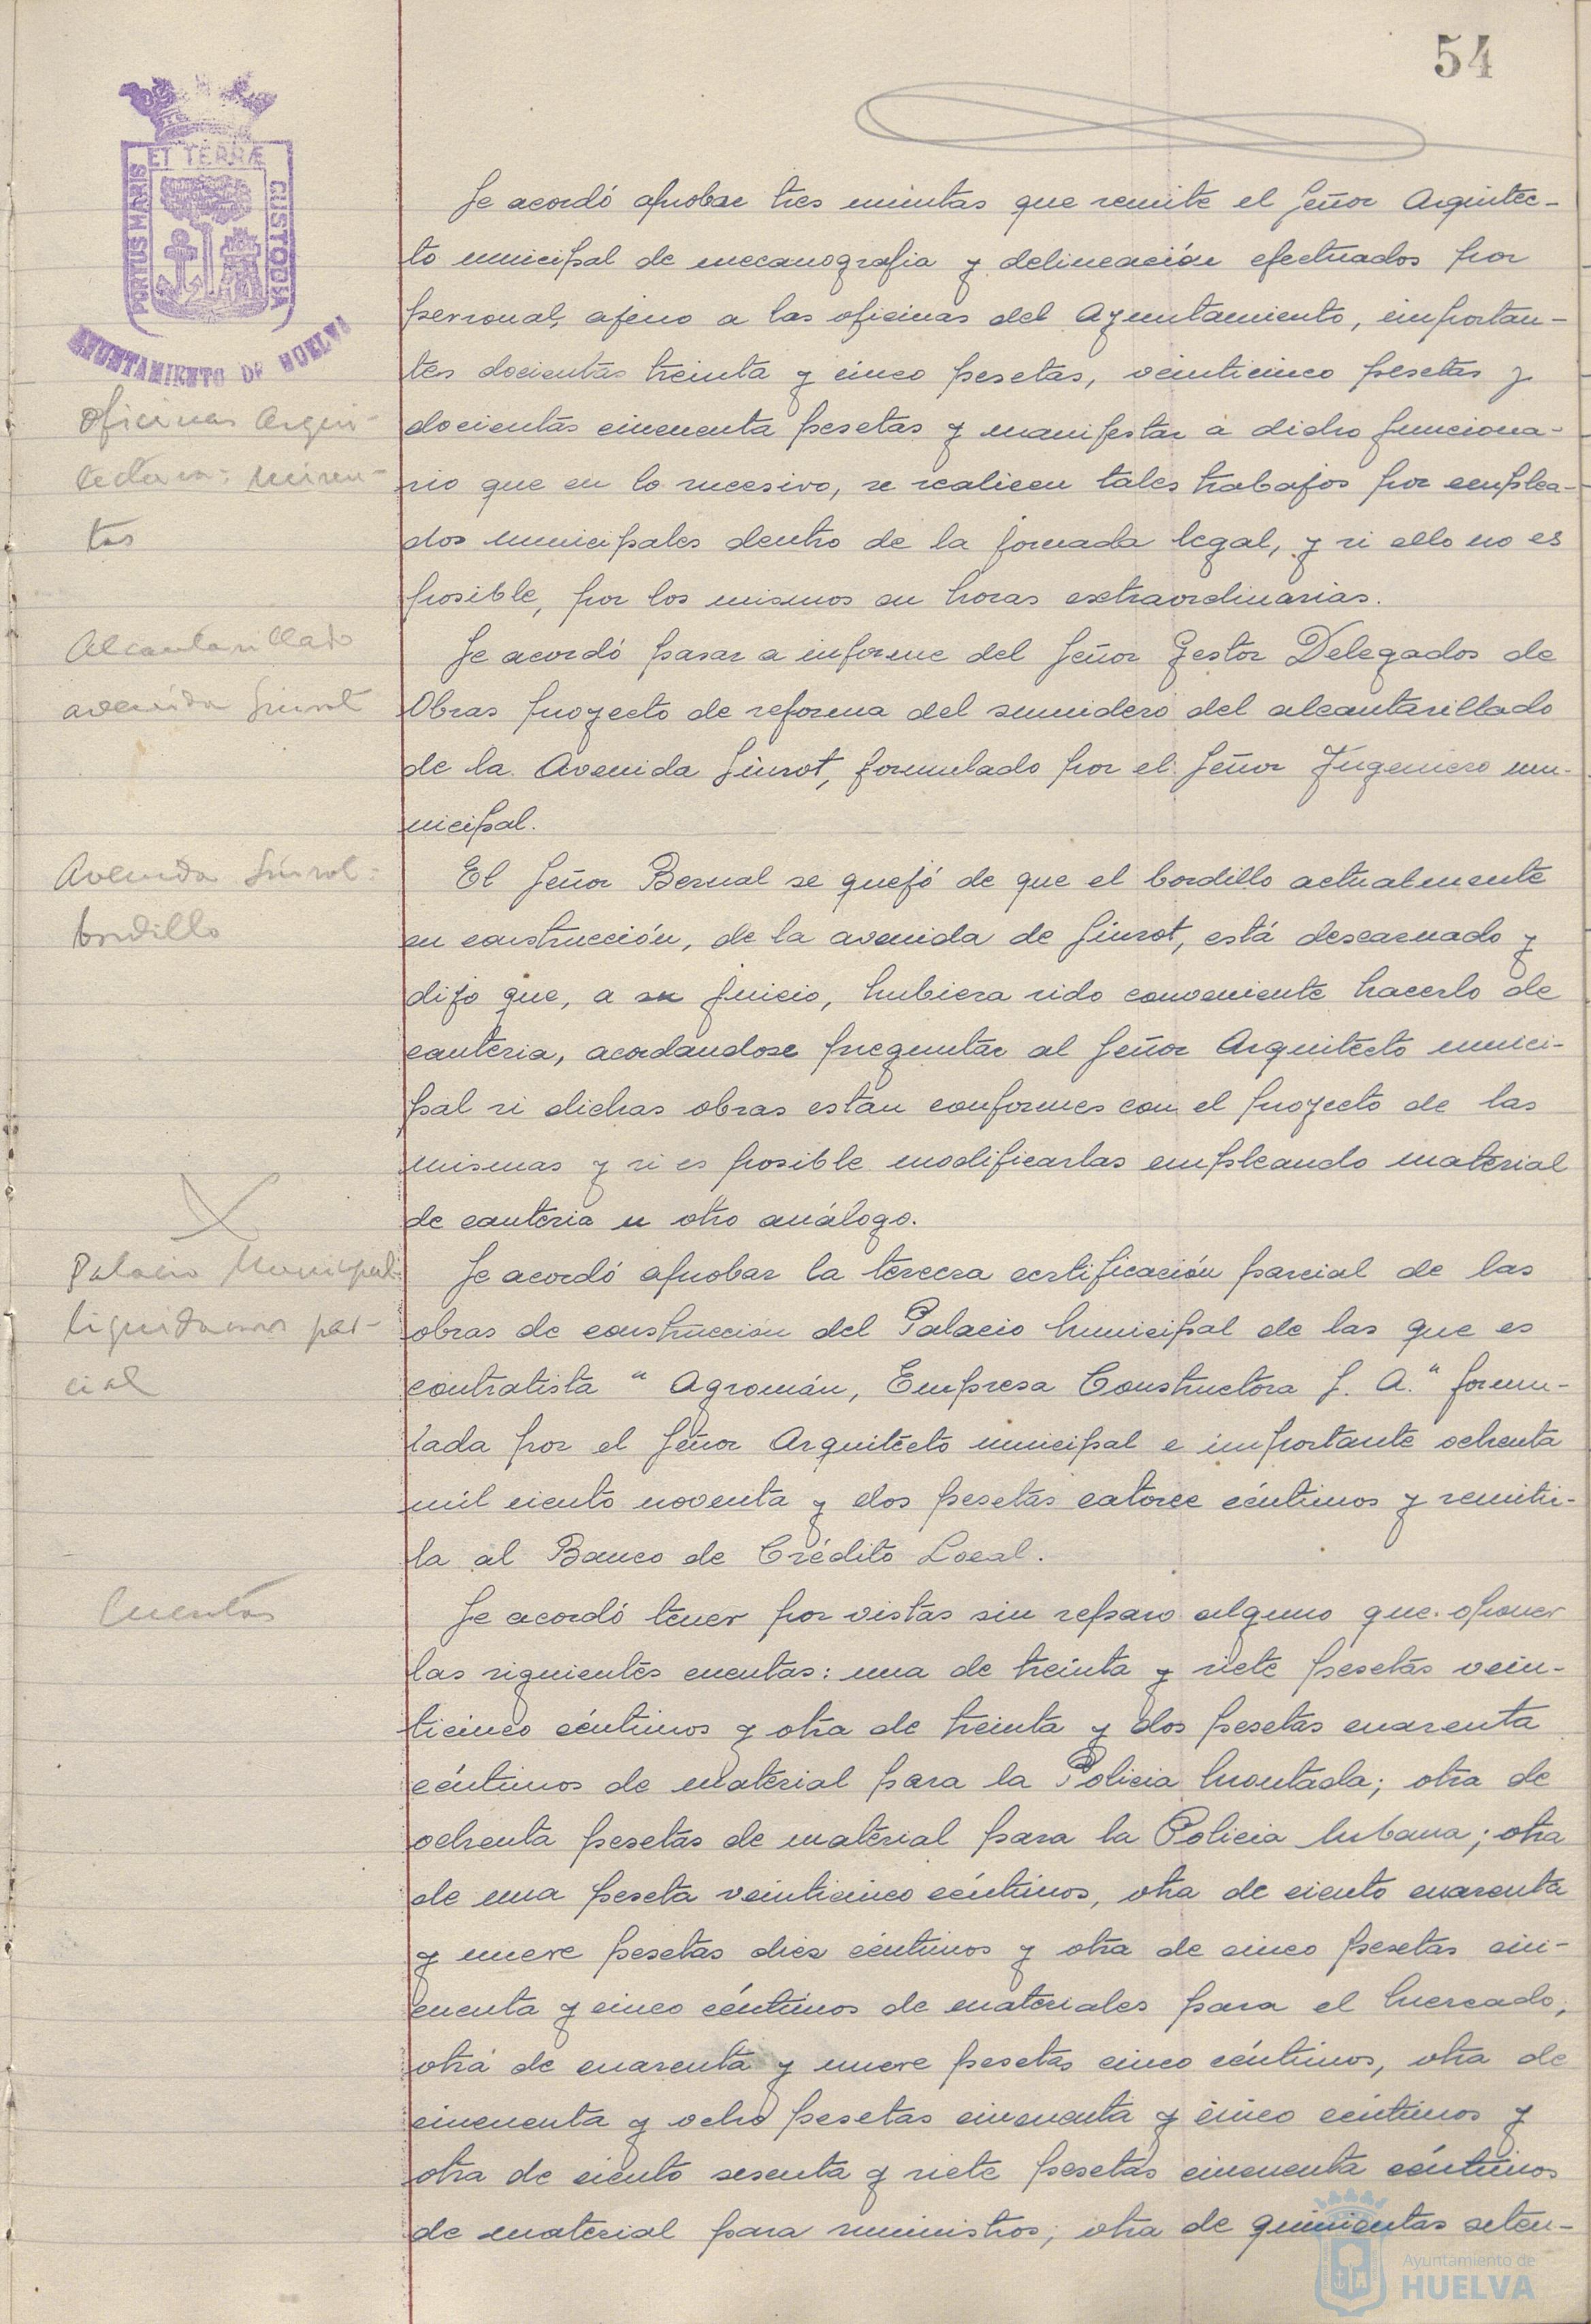 54
PORTUS MARIS ET TERRÆ CUSTODIA
AYUNTAMIENTO DE HUELVA
Se acordó aprobar tres minutas que remite el Señor Arquitec-
to municipal de mecanografia y delineación efectuados por
personal, ajeno a las oficinas del Ayuntamiento, importan-
tes docientas treinta y cinco pesetas, veinticinco pesetas y
Oficinas Arqui-
docientas cincuenta pesetas y manifestar a dicho funciona-
tectura: minu-
rio que en lo sucesivo, se realicen tales trabajos por emplea-
tas
dos municipales dentro de la jornada legal, y si ello no es
posible, por los mismos en horas extraordinarias.
Alcantarillado
Se acordó pasar a informe del Señor Gestor Delegados de
avenida Siurot
Obras proyecto de reforma del sumidero del alcantarillado
de la Avenida Siurot, formulado por el Señor Ingeniero mu-
nicipal.
Avenida Siurot:
El Señor Bernal se quejó de que el bordillo actualmente
bordillo
en construcción, de la avenida de Siurot, está descarnado y
dijo que, a su juicio, hubiera sido conveniente hacerlo de
canteria, acordandose preguntar al Señor Arquitecto munici-
pal si dichas obras estan conformes con el proyecto de las
mismas y si es posible modificarlas empleando material
de canteria u otro análogo.
Palacio Municipal:
Se acordó aprobar la tercera certificación parcial de las
liquidacion par-
obras de construcción del Palacio Municipal de las que es
cial
contratista "Agromán, Empresa Constructora S. A." formu-
lada por el Señor Arquitecto municipal e importante ochenta
mil ciento noventa y dos pesetas catorce céntimos y remitir-
la al Banco de Crédito Local.
Cuentas
Se acordó tener por vistas sin reparo alguno que oponer
las siguientes cuentas: una de treinta y siete pesetas vein-
ticinco céntimos y otra de treinta y dos pesetas cuarenta
céntimos de material para la Policia Montada; otra de
ochenta pesetas de material para la Policia Urbana; otra
de una peseta veinticinco céntimos, otra de ciento cuarenta
y nueve pesetas diez céntimos y otra de cinco pesetas cin-
cuenta y cinco céntimos de materiales para el Mercado;
otra de cuarenta y nueve pesetas cinco céntimos, otra de
cincuenta y ocho pesetas cincuenta y cinco céntimos y
otra de ciento sesenta y siete pesetas cincuenta céntimos
de material para suministros; otra de quinientas seten-
Ayuntamiento de
HUELVA